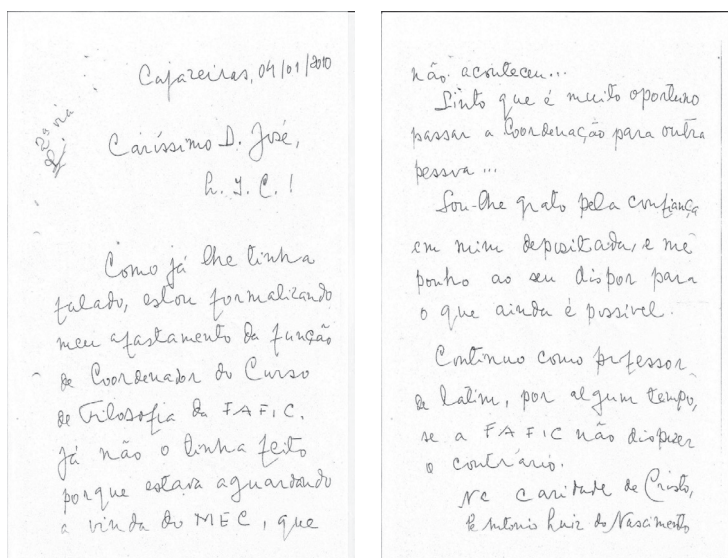 Cajazeiras, 04/01/2010
2ª via
Caríssimo D. José,
L. J. C. !
Como já lhe tinha
falado, estou formalizando
meu afastamento da função
de Coordenador do Curso
de Filosofia da FAFIC.
Já não o tinha feito
porque estava aguardando
a vinda do MEC, que
não aconteceu...
Sinto que é muito oportuno
passar a Coordenação para outra
pessoa...
Sou-lhe grato pela confiança
em mim depositada, e me
ponho ao seu dispor para
o que ainda é possível.
Continuo como professor
de latim, por algum tempo,
se a FAFIC não dispuser
o contrário.
Na caridade de Cristo,
Pe Antonio Luiz do Nascimento